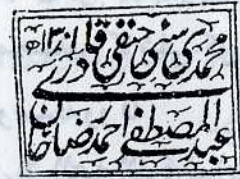 محمدی سنی حنفی قادری ۱۳۰۱ھ
عبدالمصطفے احمد رضا خاں